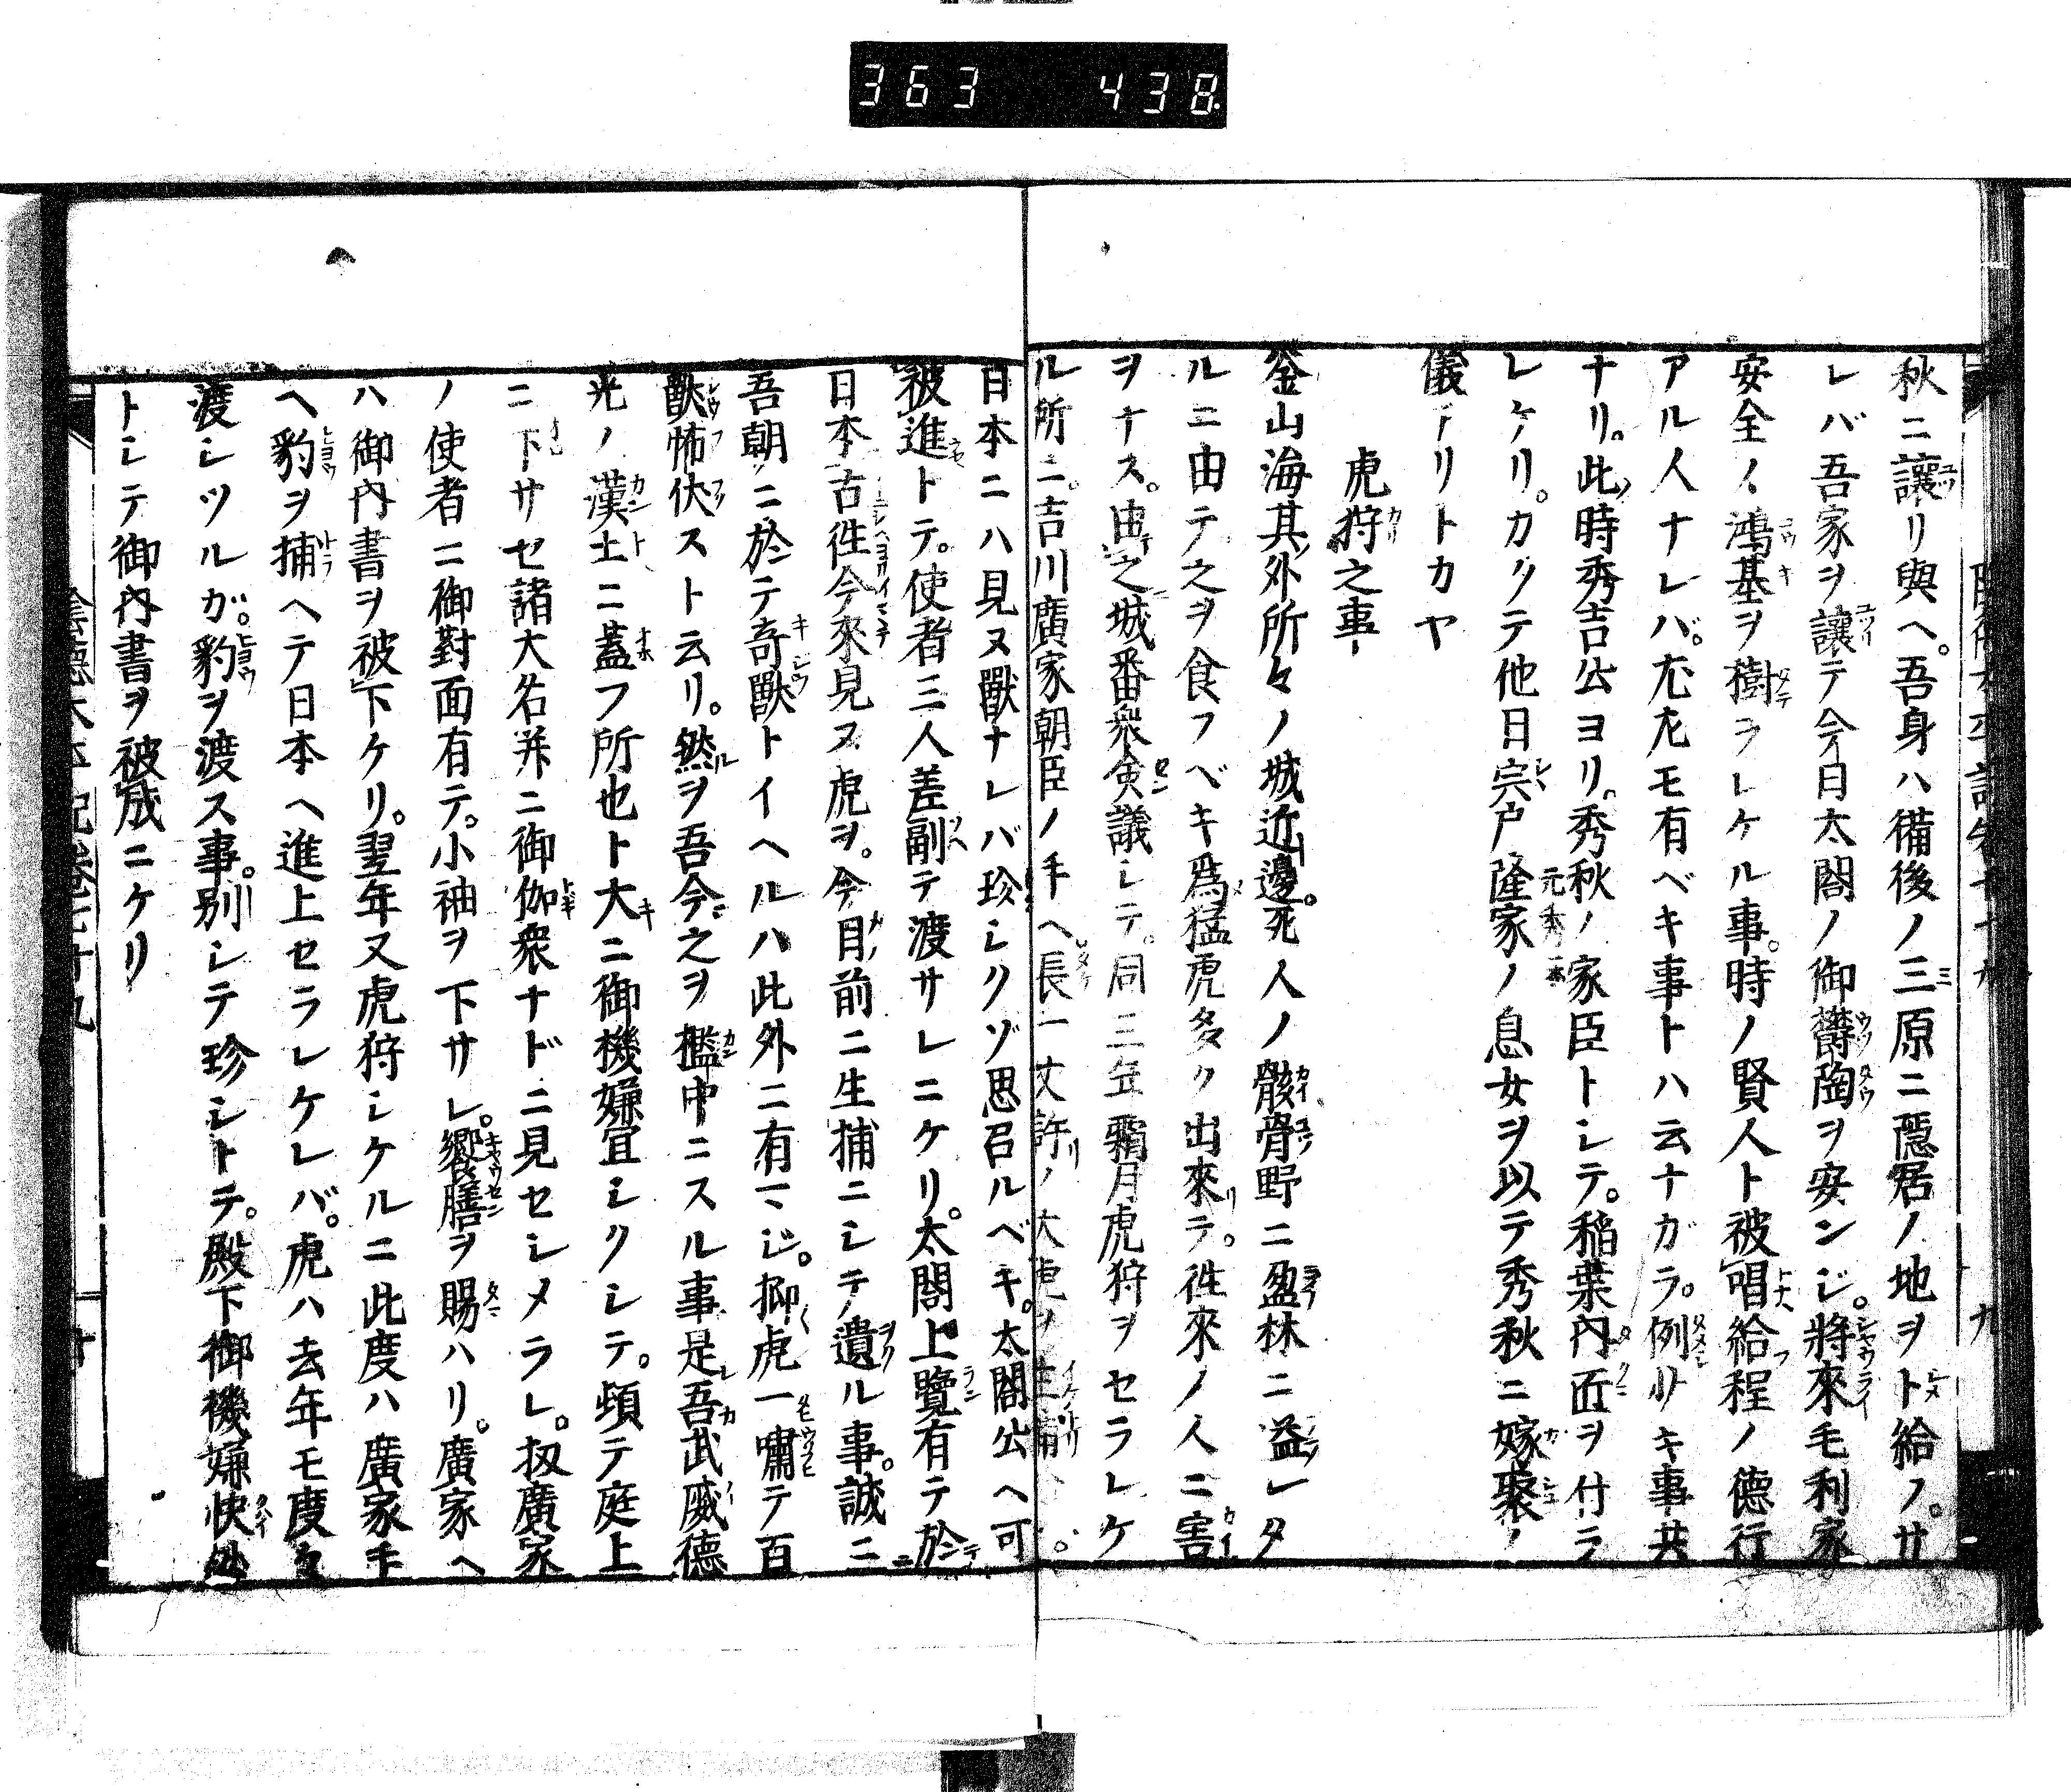 363 438
秋ニ讓リ與ヘ。吾身ハ備後ノ三原ニ隱居ノ地ヲト給フ。サ
レバ吾家ヲ讓テ今日太閤ノ御欝陶ヲ安ンジ。將來毛利家
安全ノ鴻基ヲ樹ラレケル事。時ノ賢人ト被唱給程ノ德行
アル人ナレバ。尤モ有ベキ事トハ云ナガラ。例少キ事共
ナリ。此時秀吉公ヨリ。秀秋ノ家臣トシテ。稲葉内匠ヲ付ラ
レケリ。カクテ他日宍戸隆家ノ息女ヲ以テ秀秋ニ嫁娶ノ
儀アリトカヤ
虎狩之事
釜山海其外所々ノ城近邊。死人ノ骸骨野ニ盈林ニ益レタ
ルニ由テ之ヲ食フベキ爲猛虎多ク出來リテ。徃來ノ人ニ害
ヲナス。由之城番衆僉議シテ。同三年霜月虎狩ヲセラレケ
ル所ニ。吉川廣家朝臣ノ手ヘ。長一丈許ノ大虎ヲ生捕
日本ニハ見ヌ獸ナレバ珍シクゾ思召ルベキ。太閤公ヘ可
被進トテ。使者三人差副テ渡サレニケリ。太閤上覽有テ於
日本古徃今來見ヌ虎ヲ。今目前ニ生捕ニシテ遺ル事。誠ニ
吾朝ニ於テ奇獸トイヘルハ此外ニ有マジ。抑虎一嘯テ百
獸怖伏ストモ云リ。然ヲ吾今之ヲ檻中ニスル事是吾武威德
光ノ漢土ニ蓋フ所也ト大ニ御機嫌宜シクシテ。頻テ庭上
ニ下サセ諸大名并ニ御伽衆ナドニ見セシメラレ。扨廣家
ノ使者ニ御對面有テ。小袖ヲ下サレ。饗膳ヲ賜ハリ。廣家ヘ
ハ御内書ヲ被下ケリ。翌年又虎狩シケルニ此度ハ廣家手
ヘ豹ヲ捕ヘテ日本ヘ進上セラレケレバ。虎ハ去年モ度々
渡シツルガ。豹ヲ渡ス事。別シテ珍シトテ。殿下御機嫌快然
トシテ御内書ヲ被成ニケリ